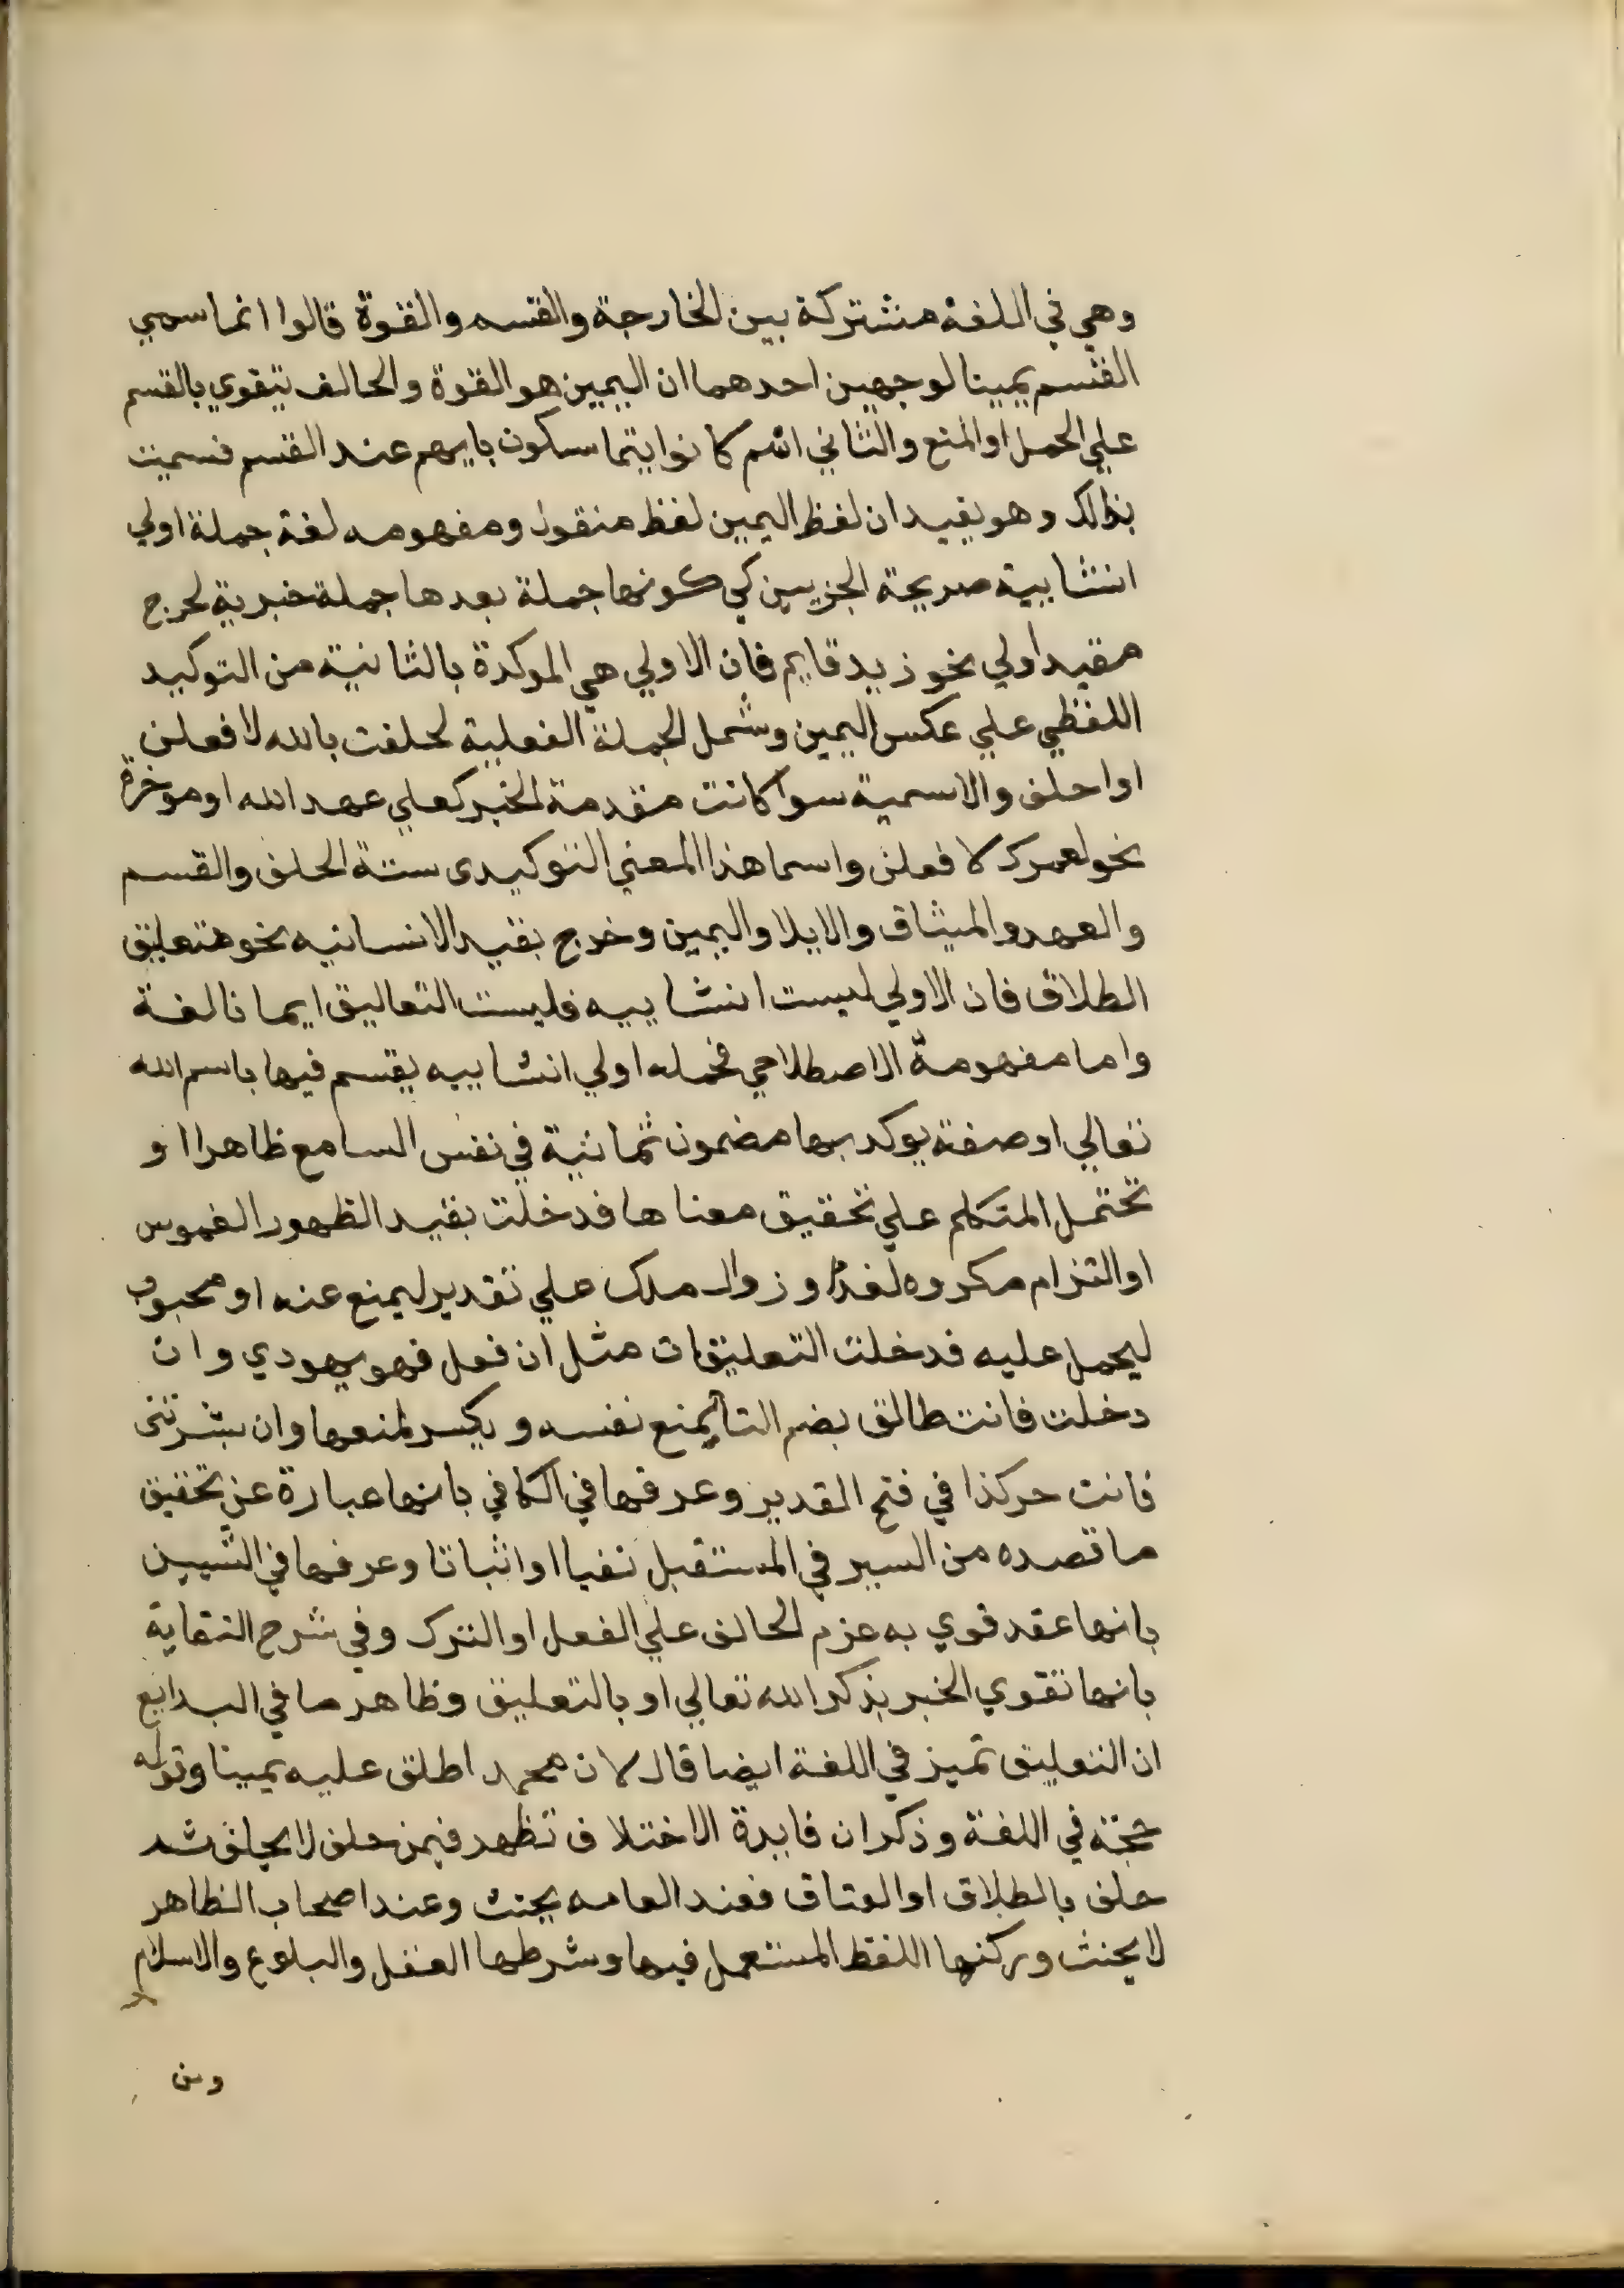 وهي في اللغة مشتركة بين الخارجة والقسم والقوة قالوا انما سمي
القسم يمينا لوجهين احدهما ان اليمين هو القوة والحالف يتقوي بالقسم
علي الحمل او المنع والثاني انهم كانوا يتماسكون بايهم عند القسم فسميت
بذالك وهو يفيد ان لفظ اليمين لفظ منقول ومفهومه لغة جملة اولي
انشايية صريحة الجزيين كي كونها جملة بعدها جملة خبرية لحرج
مقيد اولي نحو زيد قايم فان الاولي هي الموكدة بالثانية من التوكيد
اللفظي علي عكس اليمين وشمل الجملة الفعلية لحلفت بالله لافعلن
او احلف والاسمية سوا كانت مقدمة الخبر كعلي عهد الله او موخرة
نحو لعمرك لافعلن واسما هذا المعني التوكيدى ستة الحلف والقسم
والعهد والميثاق والايلا واليمين وخرج بقيد الانسانيه نحو متعليق
الطلاق فان الاولي ليست انشاييه فليست التعاليق ايمانا لغة
واما مفهومة الاصطلاحي فحمله اولي انشاييه يقسم فيها باسم الله
تعالي او صفته يوكد بها مضمون ثمانية في نفس السامع ظاهرا او
تحتمل المتكلم علي تحقيق معناها فدخلت بقيد الظهور الغموس
او التزام مكروه لغد او زوال ملك علي تقدير ليمنع عنه او محبوب
ليحمل عليه فدخلت التعليقات مثل ان فعل فهو يهودي وان
دخلت فانت طالق بضم التا ليمنع نفسه ويكسر لمنعها وان بشرتنى
فانت حر كذا في فتح القدير وعرفها في الكافي بانها عبارة عن تحقيق
ما قصده من السير في المستقبل نفيا او اثباتا وعرفها في التبيين
بانها عقد قوي به عزم الحالف علي الفعل او الترك وفي شرح النقاية
بانها تقوي الخبر بذكر الله تعالي او بالتعليق وظاهر ما في البدايع
ان التعليق تميز في اللغة ايضا قال لان محمد اطلق عليه يمينا وقوله
حجته في اللغة وذكر ان فايدة الاختلاف تظهر فيمن حلف لا يحلف ثم
حلف بالطلاق او العتاق فعند العامه يحنث وعند اصحاب الظاهر
لا يحنث وركنها اللفظ المستعمل فيها وشرطها العقل والبلوع والاسلام
ومن